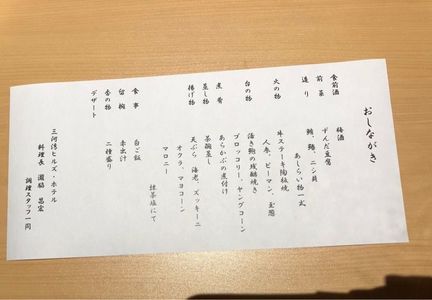 おしながき
食前酒　梅酒
前菜　ずんだ豆腐
造り　鯛、鱸、ニシ貝
あしらい物一式
火の物　牛ステーキ陶板焼
人参、ピーマン、玉葱
台の物　活き鮑の残酷焼き
ブロッコリー、ヤングコーン
煮肴　あらかぶの煮付け
蒸し物　茶碗蒸し
揚げ物　天ぷら　海老、ズッキーニ
オクラ、マヨコーン
マロニー　抹茶塩にて
食事　白ご飯
留椀　赤出汁
香の物　二種盛り
デザート
三河湾ヒルズ・ホテル
料理長　瀧脇　昌宏
調理スタッフ一同